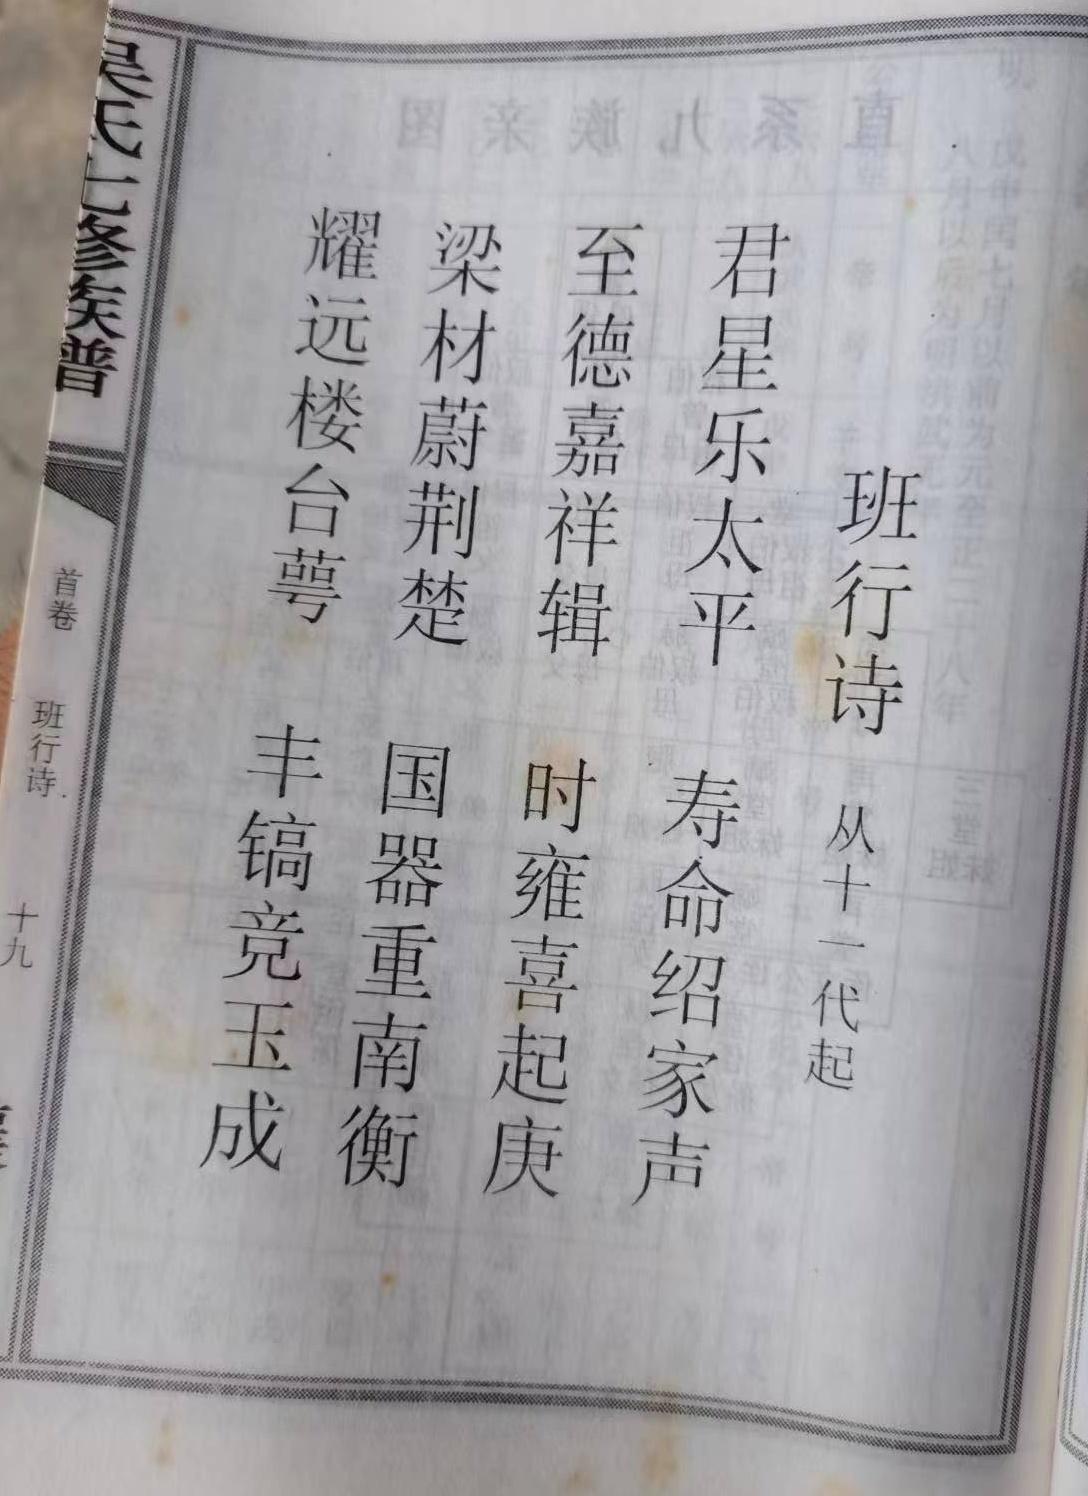 班行诗 从十一代起
君星乐太平 寿命绍家声
至德嘉祥辑 时雍喜起庚
梁材蔚荆楚 国器重南衡
耀远楼台萼 丰镐竞玉成
吴氏七修族谱
首卷 班行诗
十九